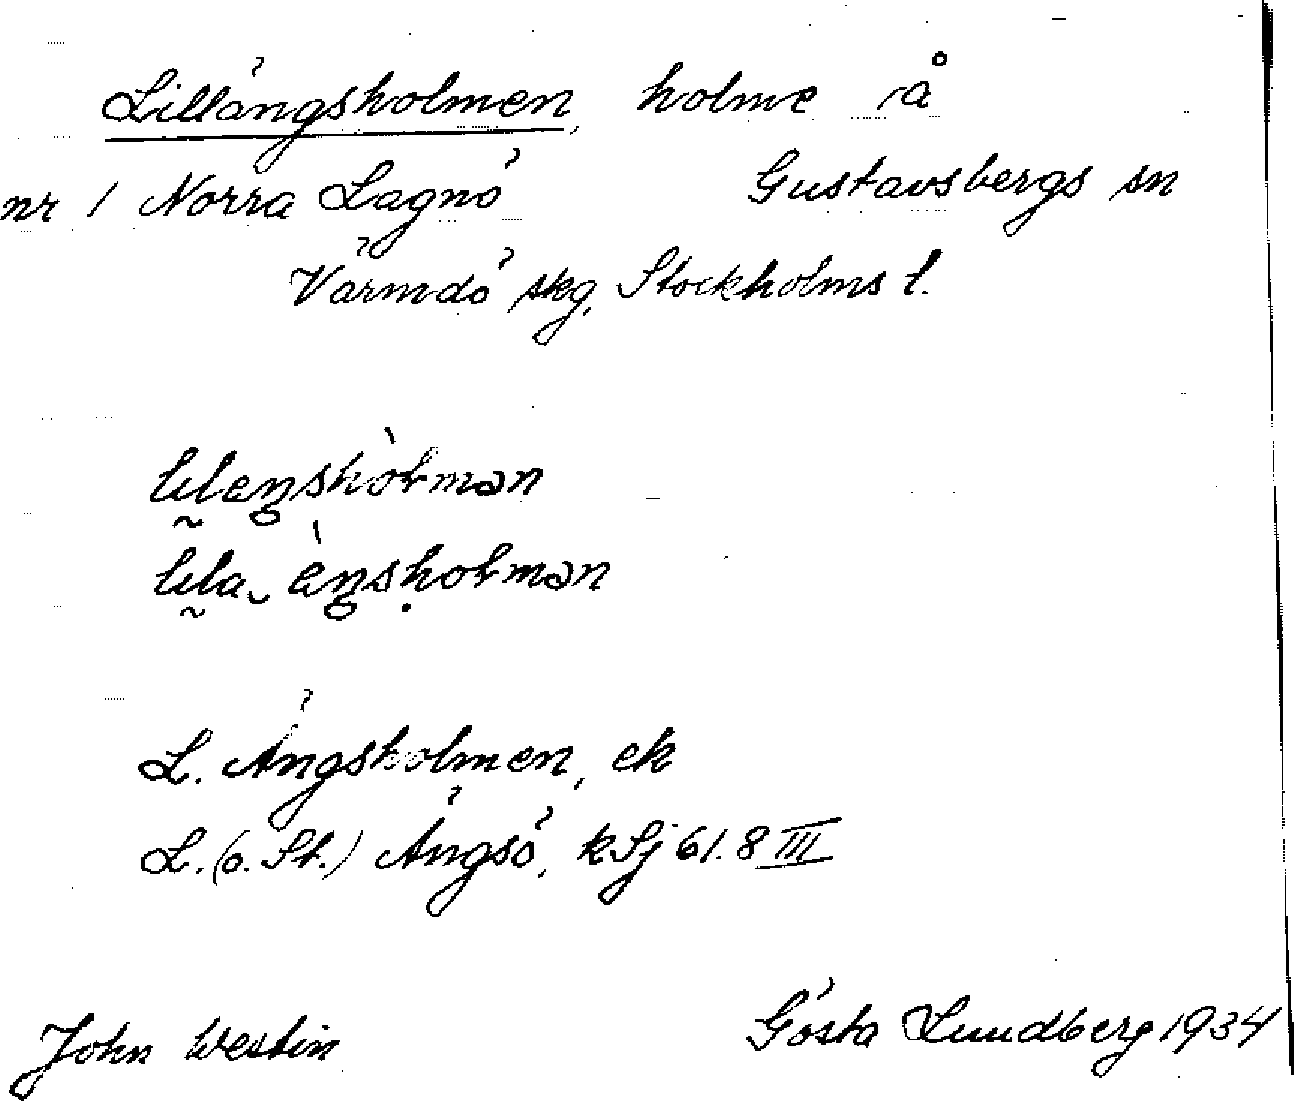 Lillängsholmen, holme å
nr 1 Norra Lagnö Gustavsbergs sn
Värmdö skg, Stockholms l.
L. Ängsholmen, ek
L. (o. St.) Ängsö, kSj 61. 8 III
John Westin Gösta Lundberg 1934